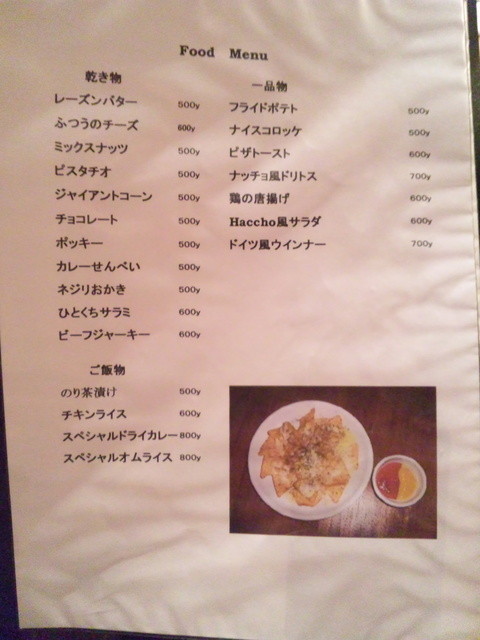 Food Menu
乾き物
レーズンバター 500y
ふつうのチーズ 600y
ミックスナッツ 500y
ピスタチオ 500y
ジャイアントコーン 500y
チョコレート 500y
ポッキー 500y
カレーせんべい 500y
ネジりおかき 500y
ひとくちサラミ 600y
ビーフジャーキー 600y
ご飯物
のり茶漬け 500y
チキンライス 600y
スペシャルドライカレー 800y
スペシャルオムライス 800y
一品物
フライドポテト 500y
ナイスコロッケ 500y
ピザトースト 600y
ナッチョ風ドリトス 700y
鶏の唐揚げ 600y
Haccho風サラダ 600y
ドイツ風ウインナー 700y